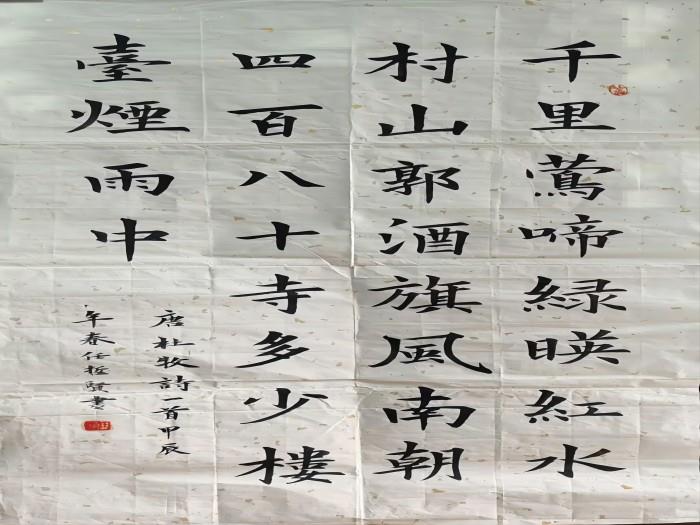 千里莺啼緑暎紅水
村山郭酒旗風南朝
四百八十寺多少樓
臺煙雨中
唐杜牧詩一首甲辰
年春任哲賢書